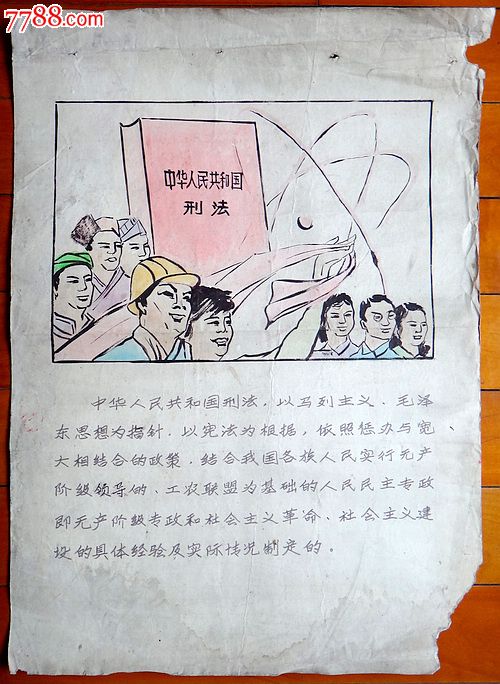 7788.com
中华人民共和国
刑法
中华人民共和国刑法，以马列主义、毛泽
东思想为指针，以宪法为根据，依照惩办与宽
大相结合的政策，结合我国各族人民实行无产
阶级领导的、工农联盟为基础的人民民主专政
即无产阶级专政和社会主义革命、社会主义建
设的具体经验及实际情况制定的。